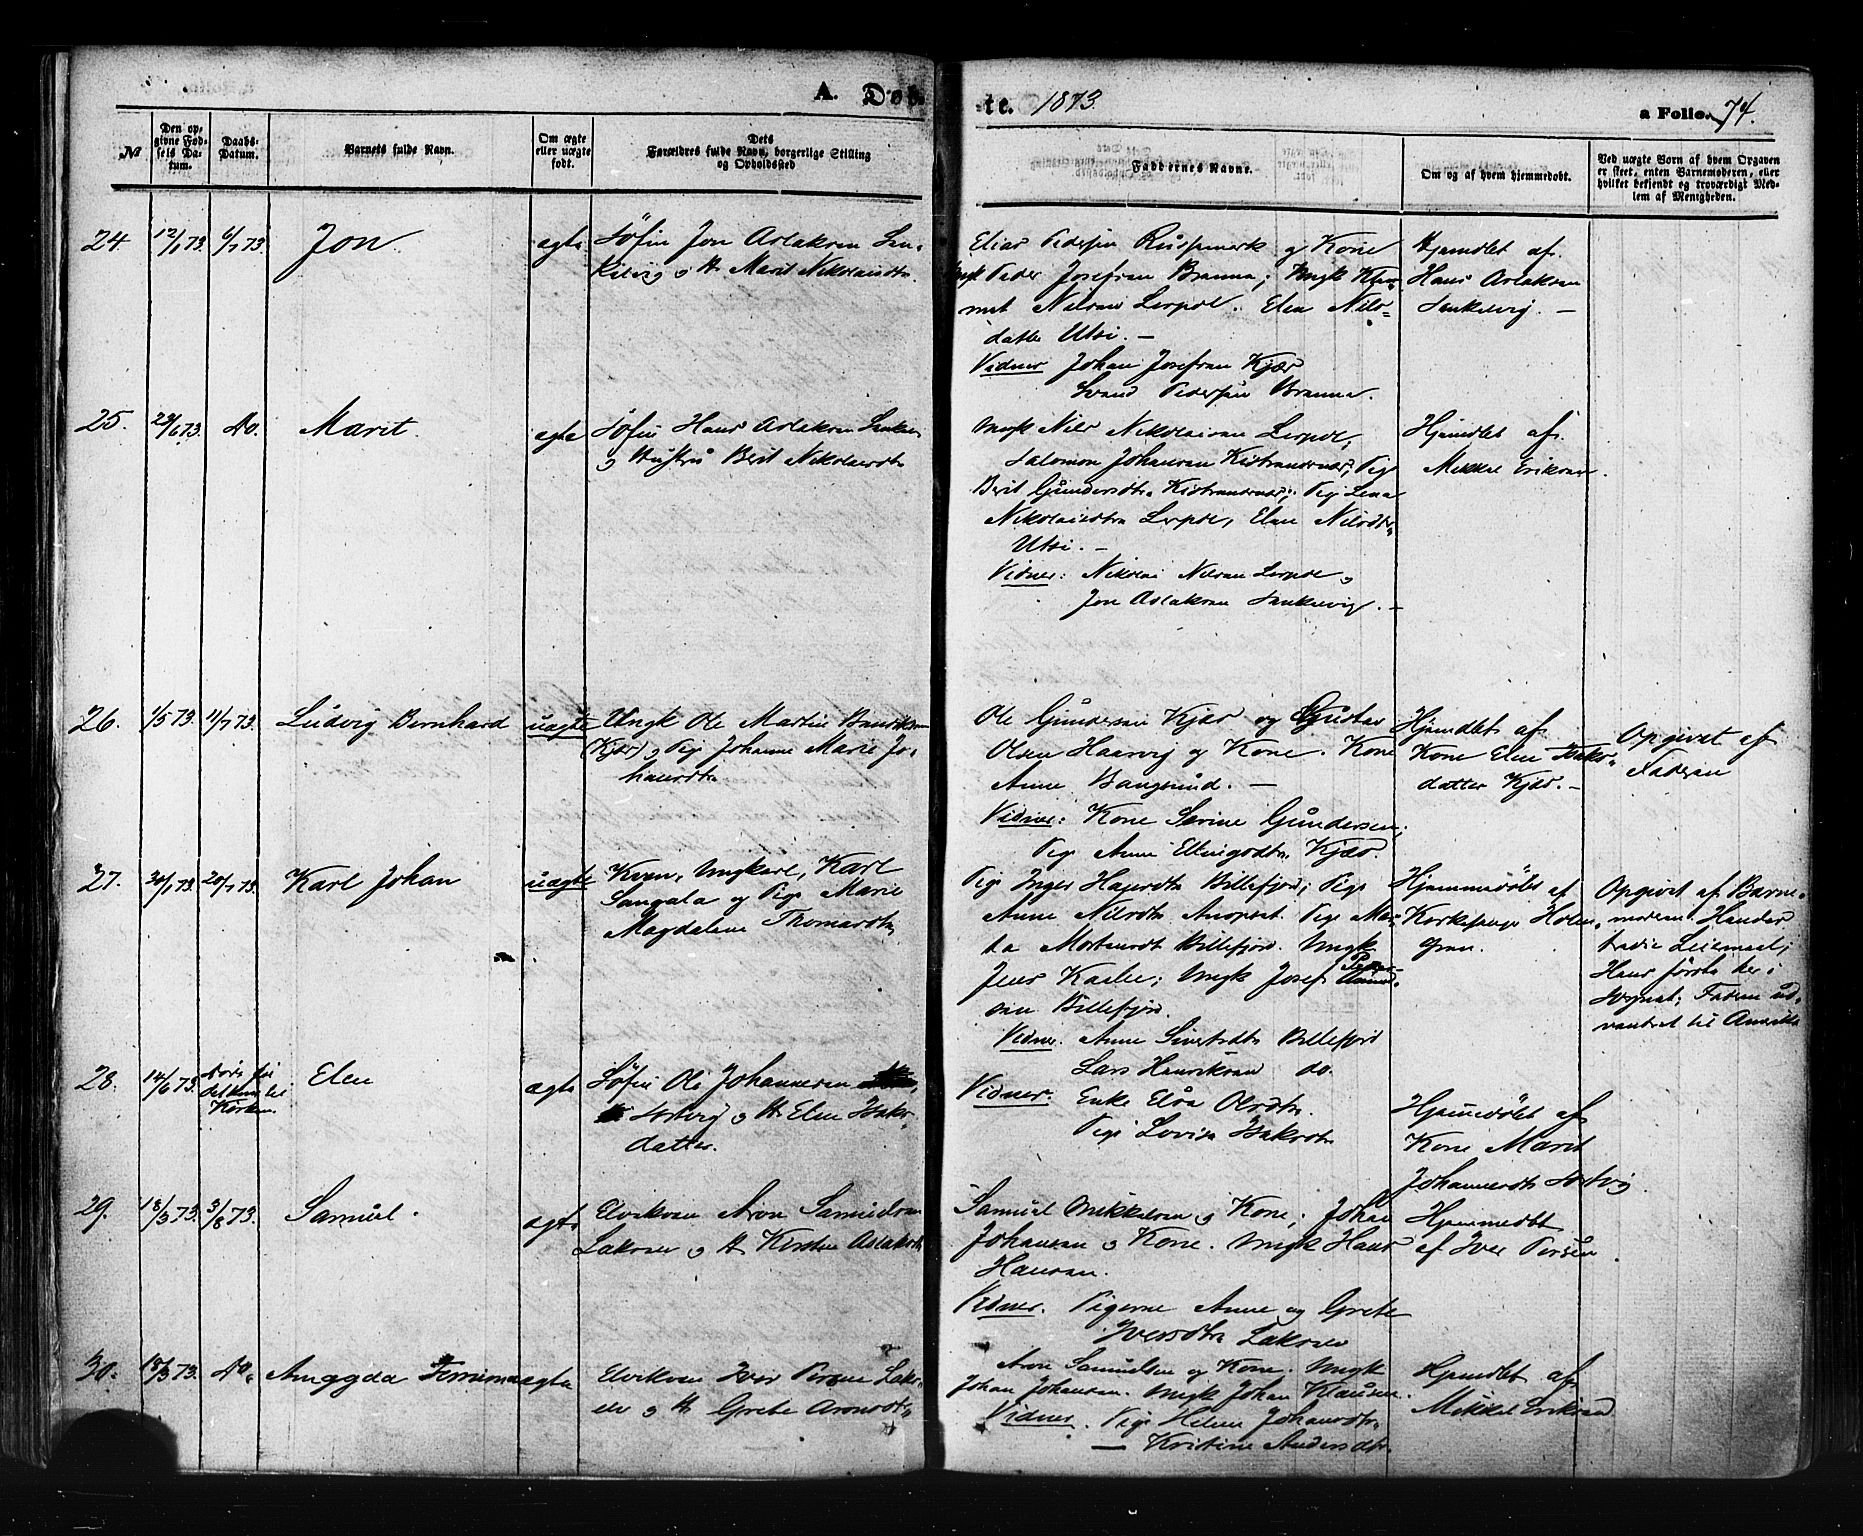 A. Døb-
te. 1873.
a Folio. 74.
№
Den op-
givne Fød-
sels Da-
tum.
Daabs-
Datum.
Barnets fulde Navn.
Om ægte
eller uægte
født.
Dets
Forældres fulde Navn, borgerlige Stilling
og Opholdssted
Faddernes Navne.
Om og af hvem hjemmedøbt.
Ved uægte Børn af hvem Opgaven
er skeet, enten Barnemoderen, eller
hvilket bekjendt og troværdigt Med-
lem af Menigheden.
24 12/1 73. 6/7 73. Jon. ægte Søfin Jon Aslaksen
og H. Marit Nikolaisdtr.
Elias Pedersen og Kone
Ungk Peder Josefsen Brenna; Ungk Klem-
met Nilsen Leirpol. Elen Nils-
datter Utsi. —
Vidner Johan Josefsen Kjær
Pedersen Brenna.
Hjemdbt af
Hans Aslaksen
—
25. Do. Marit. ægte Søfin Hans Aslaksen
og Hustru Berit Nikolaisdtr
Ungk Nils Nikolaisen Leirpol,
Salomon Johansen Kistrandnæs; Pige
Berit Gundersdtr Kistrandnæs; Pige Lena
Nikolaisdtr Leirpol, Elen Nilsdtr
Utsi. —
Vidner: Nikolai Nilsen Leirpol og
Jon Aslaksen —
Hjemdbt af
Mikkel Eriksen.
26. 1/5 73. 11/7 73. Ludvig Bernhard uægte Ungk Ole Martin
(Kjær) og Pige Johanne Marie Jo-
hansdtr
Ole Gundersen Kjær og Gustav
Olsen Haarvig og Kone. Kone
Anne Bangsund. —
Vidner: Kone Serine Gundersen;
Pige Anne Kjær.
Hjemdbt af
Kone Elen Isaks-
datter Kjær. —
Opgivet af
Faderen
27. 30/1 73. 20/7 73. Karl Johan uægte Kven, Ungkarl, Karl
Sangala og Pige Marie
Magdalena Thomasdtr
Pige Inger Hansdtr Billefjord; Pige
Anne Nilsdtr Anopset. Pige Mar-
ta Mortensdt Billefjord. Ungk
Jens Kaaben; Ungk Josef
sen Billefjord.
Vidner. Anne Sivertsdtr Billefjord
Lars Henriksen do.
Hjemmedøbt af
Kirkesanger Holm-
gren.
Opgivet af Barne-
moderen. Hendes
tredie Leiermaal;
Hans første her i
Sognet; Faderen ud-
vandret til Amerika
28. 14/6 73. Døde før
det kom til
Kirken. Elen ægte Søfin Ole Johannesen
og H. Elen Isaks-
datter.
Vidner. Enke Elsa Olsdtr.
Pige Lovisa Isaksdtr
Hjemmedøbt af
Kone Marit
Johannesdtr
29. 18/3 73. 3/8 73. Samuel. ægte Elvekven Aron Samuelsen
Lakselv og H. Kirsten Aslaksdtr
Samuel Mikkelsen og Kone; Johan
Johansen og Kone. Ungk Hans
Hansen.
Vidner. Pigerne Anne og Grete
Iversdtr Lakselv
Hjemmedbt
af Iver Persen.
30. 18/3 73. Do. ægte Elvekven Iver Persen Laks-
elv og H. Grete Aronsdtr
Aron Samuelsen og Kone. Ungk
Johan Johansen. Ungk Johan Klausen.
Vidner. Pige Helene Johansdtr
— Kristine Andersdtr.
Hjemdbt af
Mikkel Eriksen